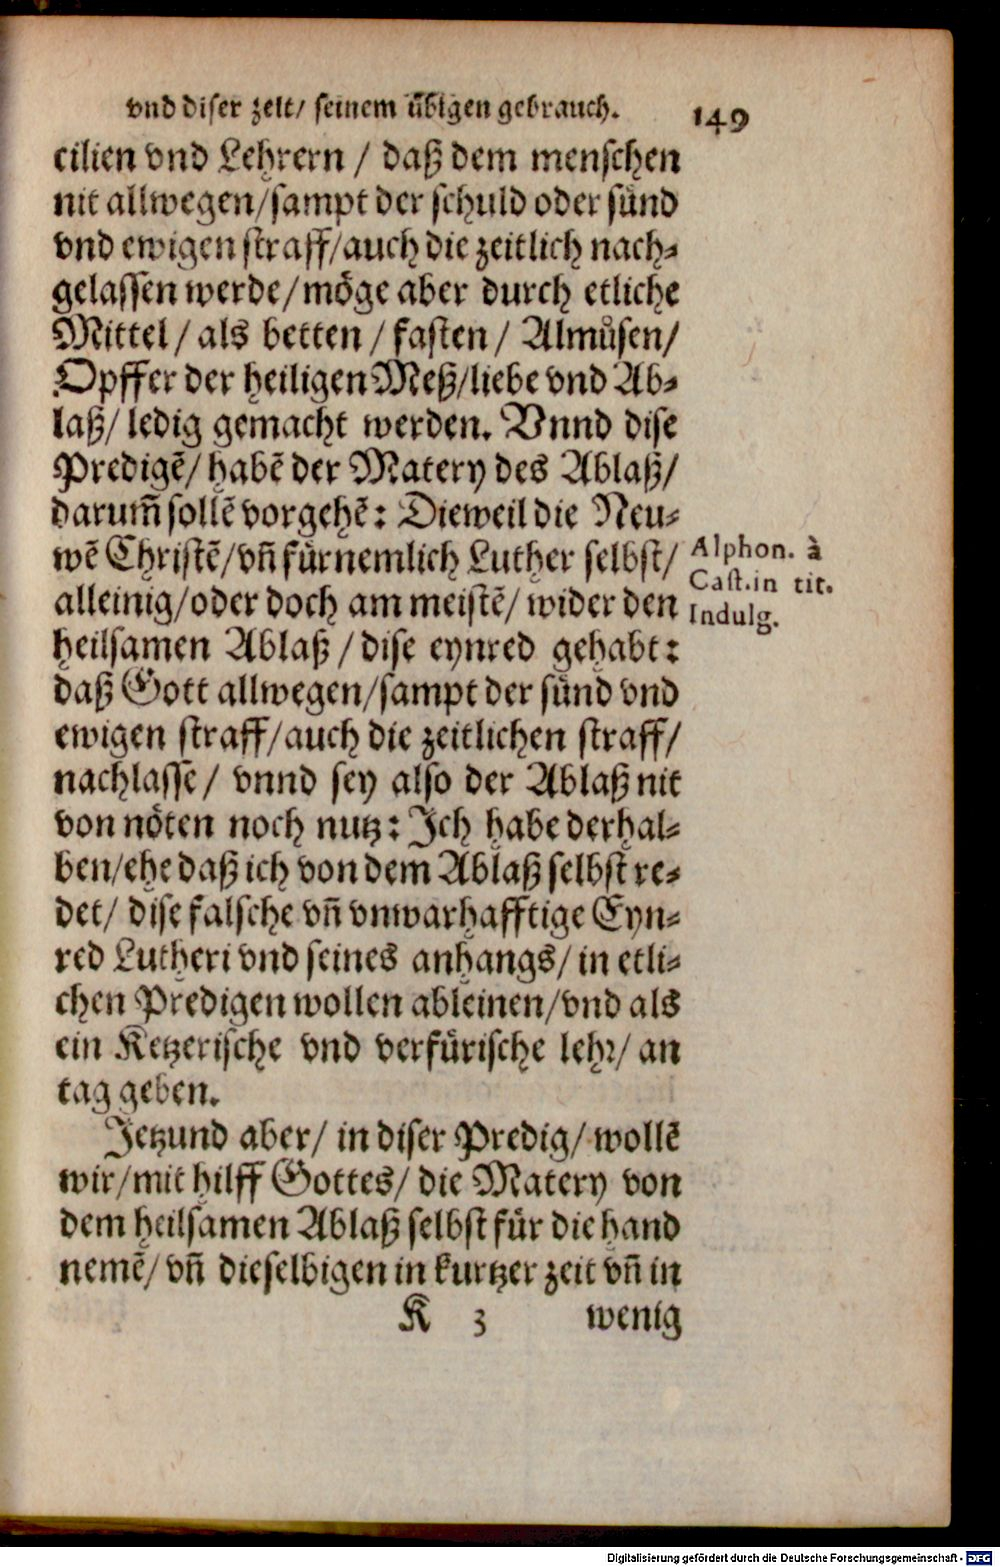 vnd diser zeit/ seinem übigen gebrauch. 149
cilien vnd Lehrern / daß dem menschen
nit allwegen/sampt der schuld oder sünd
vnd ewigen straff/auch die zeitlich nach⸗
gelassen werde/möge aber durch etliche
Mittel/ als betten / fasten / Almůsen/
Opffer der heiligen Meß/liebe vnd Ab⸗
laß/ ledig gemacht werden. Vnnd dise
Predigẽ/ habẽ der Matery des Ablaß/
darum̃ sollẽ vorgehẽ: Dieweil die Neu⸗
wẽ Christẽ/vñ fürnemlich Luther selbst/
alleinig/oder doch am meistẽ/ wider den
heilsamen Ablaß / dise eynred gehabt:
daß Gott allwegen/sampt der sünd vnd
ewigen straff/auch die zeitlichen straff/
nachlasse/ vnnd sey also der Ablaß nit
von nöten noch nutz: Ich habe derhal⸗
ben/ehe daß ich von dem Ablaß selbst re⸗
det/ dise falsche vñ vnwarhafftige Eyn⸗
red Lutheri vnd seines anhangs/ in etli⸗
chen Predigen wollen ableinen/vnd als
ein Ketzerische vnd verfürische lehr/ an
tag geben.
Jetzund aber/ in diser Predig/ wollẽ
wir/mit hilff Gottes/ die Matery von
dem heilsamen Ablaß selbst für die hand
nemẽ/ vñ dieselbigen in kurtzer zeit vñ in
K 3 wenig
Alphon. à
Cast.in tit.
Indulg.
Digitalisierung gefördert durch die Deutsche Forschungsgemeinschaft - DFG